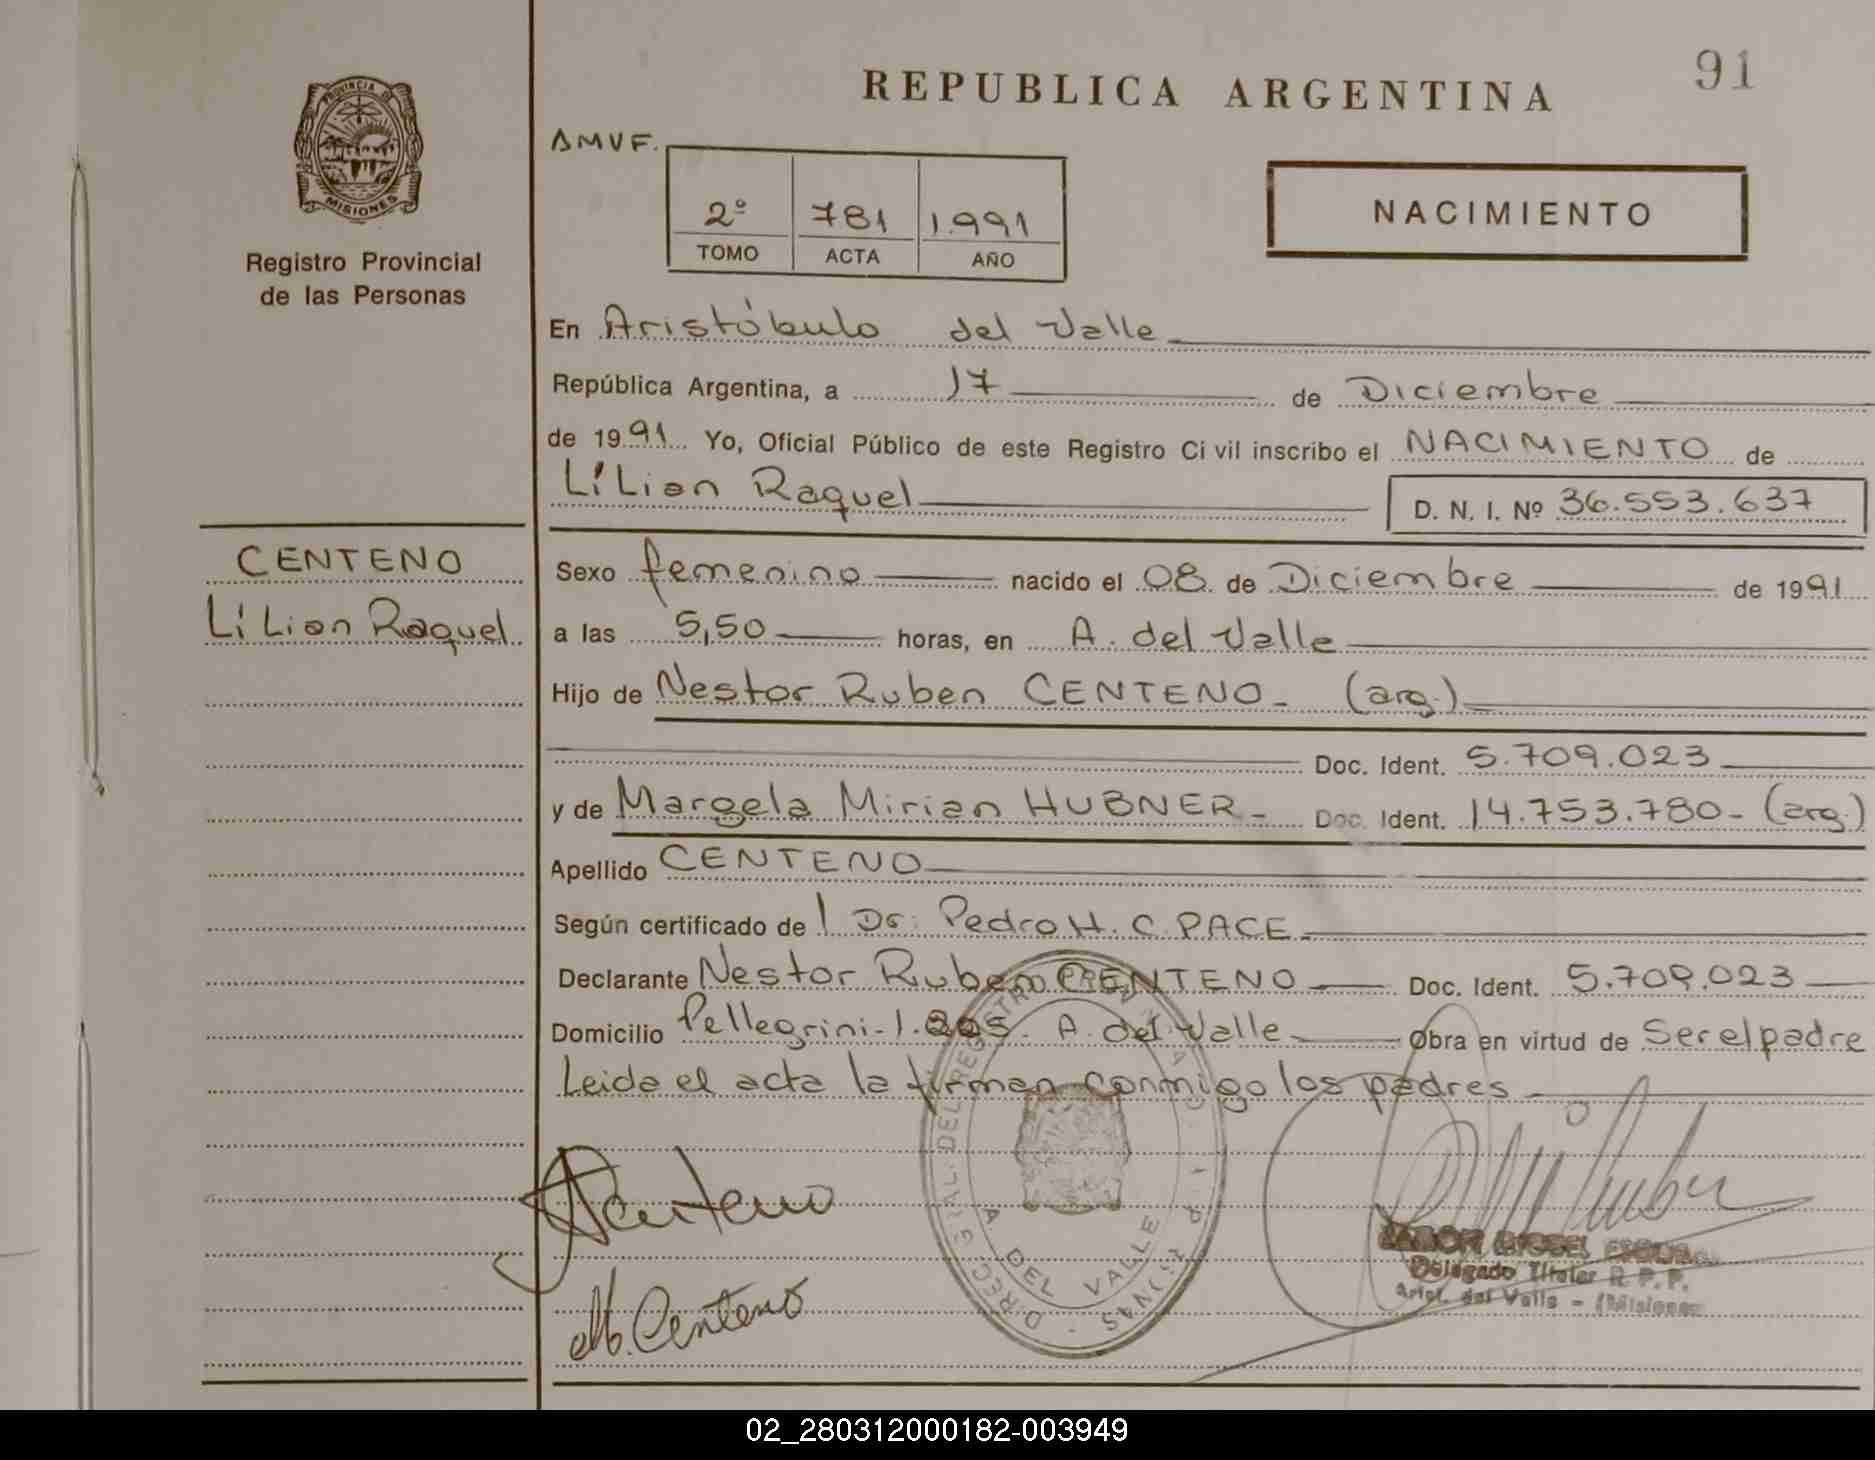 91
REPUBLICA ARGENTINA
PROVINCIA DE
MISIONES
Registro Provincial
de las Personas
AMVF.
2º 781 1.991
TOMO ACTA AÑO
NACIMIENTO
En Aristóbulo del Valle
República Argentina, a 17 de Diciembre
de 1991 Yo, Oficial Público de este Registro Civil inscribo el NACIMIENTO de
Lílian Raquel D. N. I. Nº 36.553.637
CENTENO
Lílian Raquel
Sexo femenino nacido el 08 de Diciembre de 1991
a las 5,50 horas, en A. del Valle
Hijo de Nestor Ruben CENTENO- (arg.)
Doc. Ident. 5.709.023
y de Margela Mirian HUBNER- Doc. Ident. 14.753.780- (arg.)
Apellido CENTENO
Según certificado de l Dr: Pedro H. C. PACE
Declarante Nestor Ruben CENTENO Doc. Ident. 5.709.023
Domicilio Pellegrini- A. del Valle Obra en virtud de Ser el padre
Leida el acta la firman conmigo los padres
Centeno
M. Centeno
A. DEL VALLE
Delegado Titular R. P. P.
Arist. del Valle - (Misiones
02_280312000182-003949